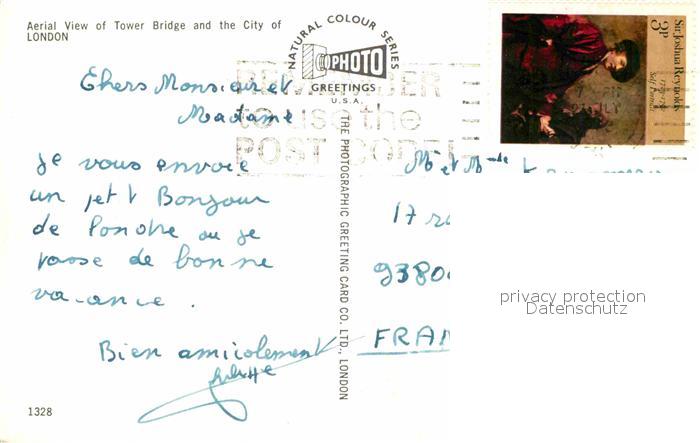 Aerial View of Tower Bridge and the City of
LONDON
NATURAL COLOUR SERIES
PHOTO
GREETINGS
U.S.A.
REMEMBER
to use the
POST CODE
Sir Joshua Reynolds
Self Portrait
3P
Chers Monsieur et
Madame
je vous envoie
un petit Bonjour
de Londre ou je
passe de bonne
vacance .
Bien amicalement
THE PHOTOGRAPHIC GREETING CARD CO. LTD., LONDON
M et Mde
17
9380
FRAN
privacy protection
Datenschutz
1328